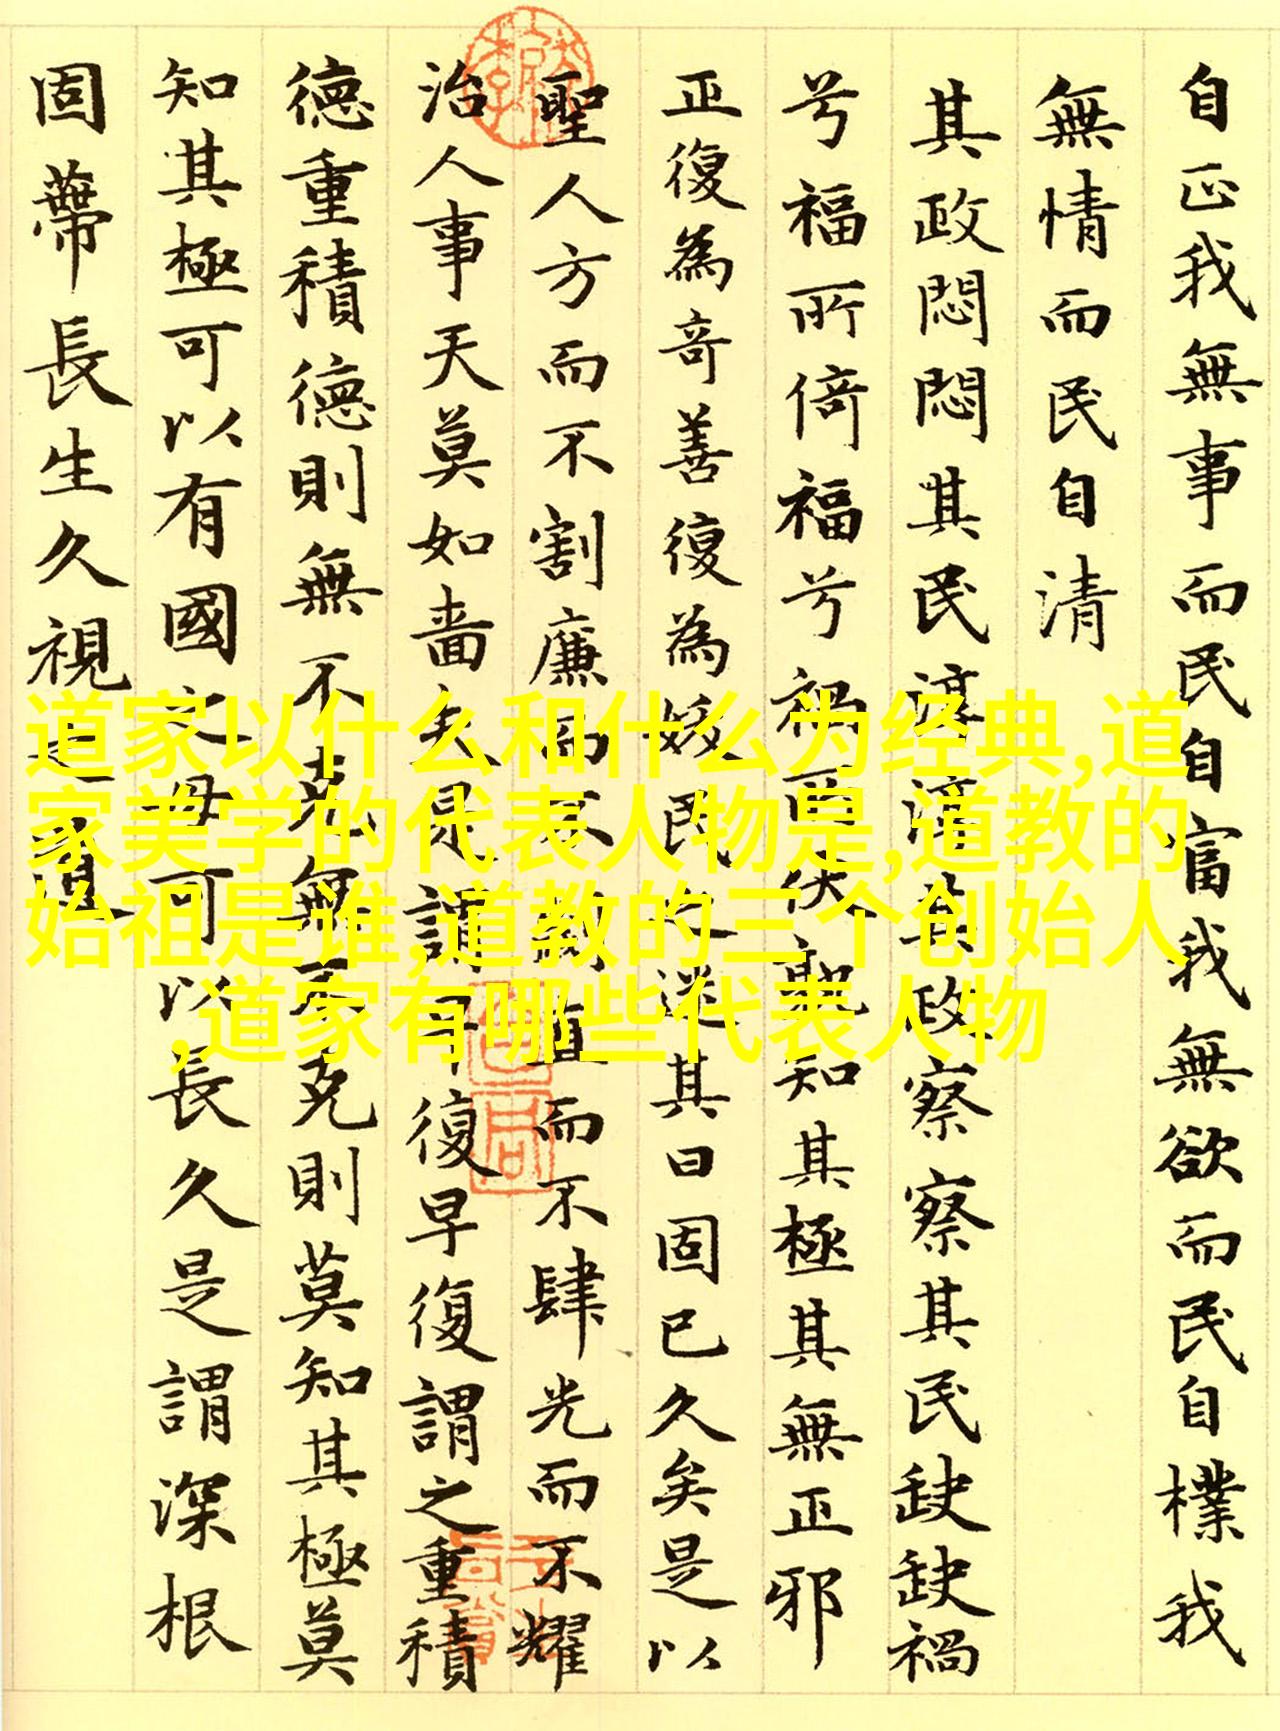 自正我無事而民自富我無欲而民自樸我
無情而民自清
其政悶悶其民淳淳其政察察其民缺缺禍
兮福所倚福兮禍所伏孰知其極其無正邪
正復為奇善復為妖民之迷其日固已久矣是以
聖人方而不割廉而不劌直而不肆光而不耀
治人事天莫如嗇夫是謂早復早復謂之重積
德重積德則無不克無不克則莫知其極莫
知其極可以有國之母可以長久是謂深根
固蔕長生久視之道
道家以什么和什么为经典,道
家美学的代表人物是,道教的
始祖是谁,道教的三个创始人
,道家有哪些代表人物